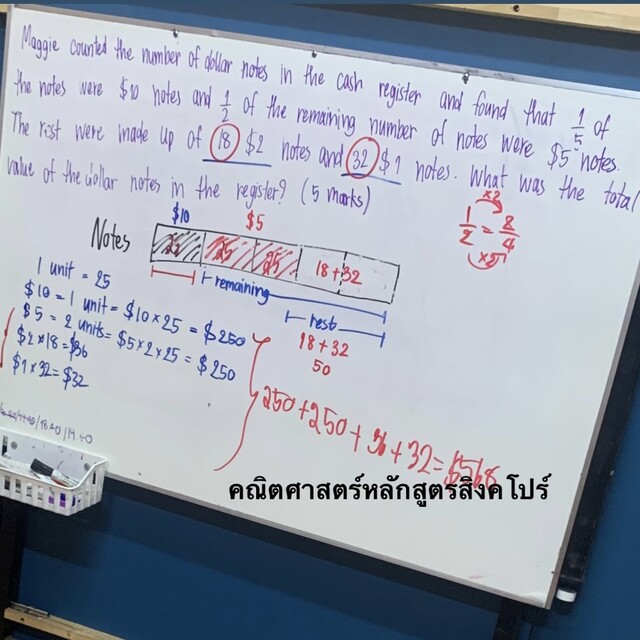 Maggie counted the number of dollar notes in the cash register and found that 1/5 of
the notes were $10 notes and 1/2 of the remaining number of notes were $5 notes.
The rest were made up of 18 $2 notes and 32 $1 notes. What was the total
value of the dollar notes in the register? (5 marks)
$10 $5
Notes 25 25 25 18+32
remaining
rest
18+32
50
×2
1/2 = 2/4
×2
1 unit = 25
$10 = 1 unit = $10×25 = $250
$5 = 2 units = $5×2×25 = $250
$2×18 = $36
$1×32 = $32
250+250+36+32 = $568
คณิตศาสตร์หลักสูตรสิงคโปร์